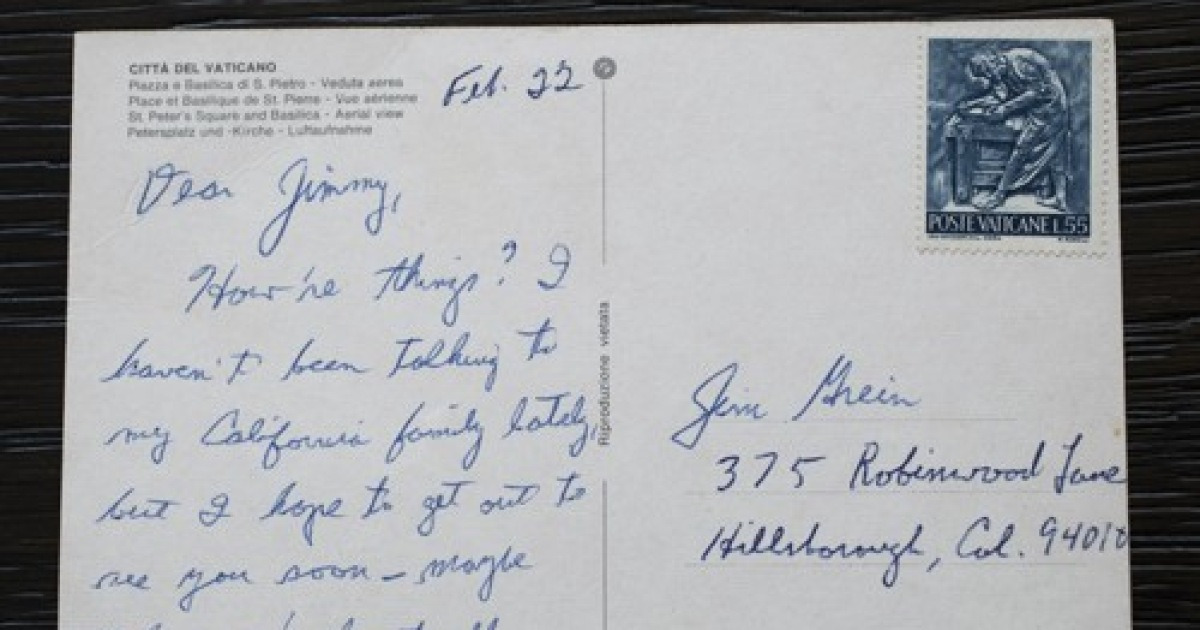 CITTÀ DEL VATICANO
Piazza e Basilica di S. Pietro - Veduta aerea
Place et Basilique de St. Pierre - Vue aérienne
St. Peter's Square and Basilica - Aerial view
Petersplatz und -Kirche - Luftaufnahme
Feb. 22
Dear Jimmy,
How're things? I
haven't been talking to
my California family lately,
but I hope to get out to
see you soon - maybe
Riproduzione vietata
POSTE VATICANE L.55
Jim Grein
375 Robinwood Lane
Hillsborough, Cal. 94010